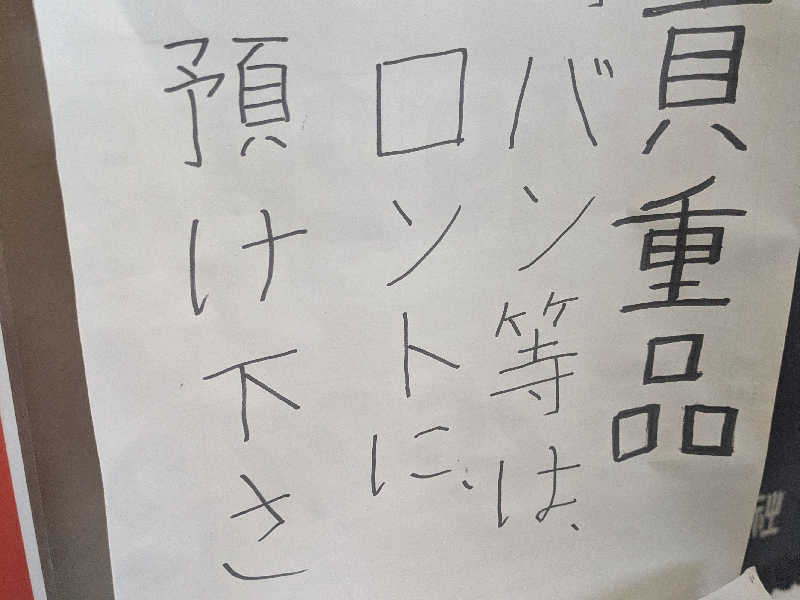 貴重品
バン等は、
ロントに、
預け下さい